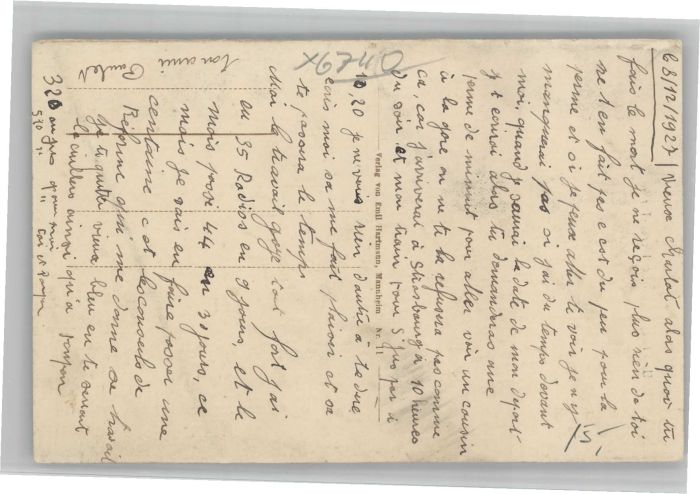 le 8/12/1927/ Vieux Mulot alors quoi tu
fais le mort je ne reçois plus rien de toi
ne t'en fait pas c'est du peu pour la
perme et si je peux aller te voir je n'y
manquerai pas si j'ai du temps devant
moi, quand je saurai la date de mon départ
je t'ecrirai alors tu demanderas une
perme de minuit pour aller voir un cousin
à la gare on ne te la refusera pas comme
ça, car j'arriverai à Strasbourg a 10 heures
du soir et mon train pour
Verlag von Emil Hartmann, Mannheim Nr. 11
20 je ne vois rien d'autre à te dire
ecris moi sa me fait plaisir et sa
te passera le temps
Moi le travail gaze tout fort j'ai
eu 35 Radios en 9 jours, et le
mois passé 44 en 30 jours, ce
mois je vais en faire passer une
centaine c'est le conseil de
Réforme qui me donne ce travail
Je te quitte vieux bleu en te serrant
la cuillère ainsi qu'à
320 au jus pour moi
530 " " toi et
Ton ami